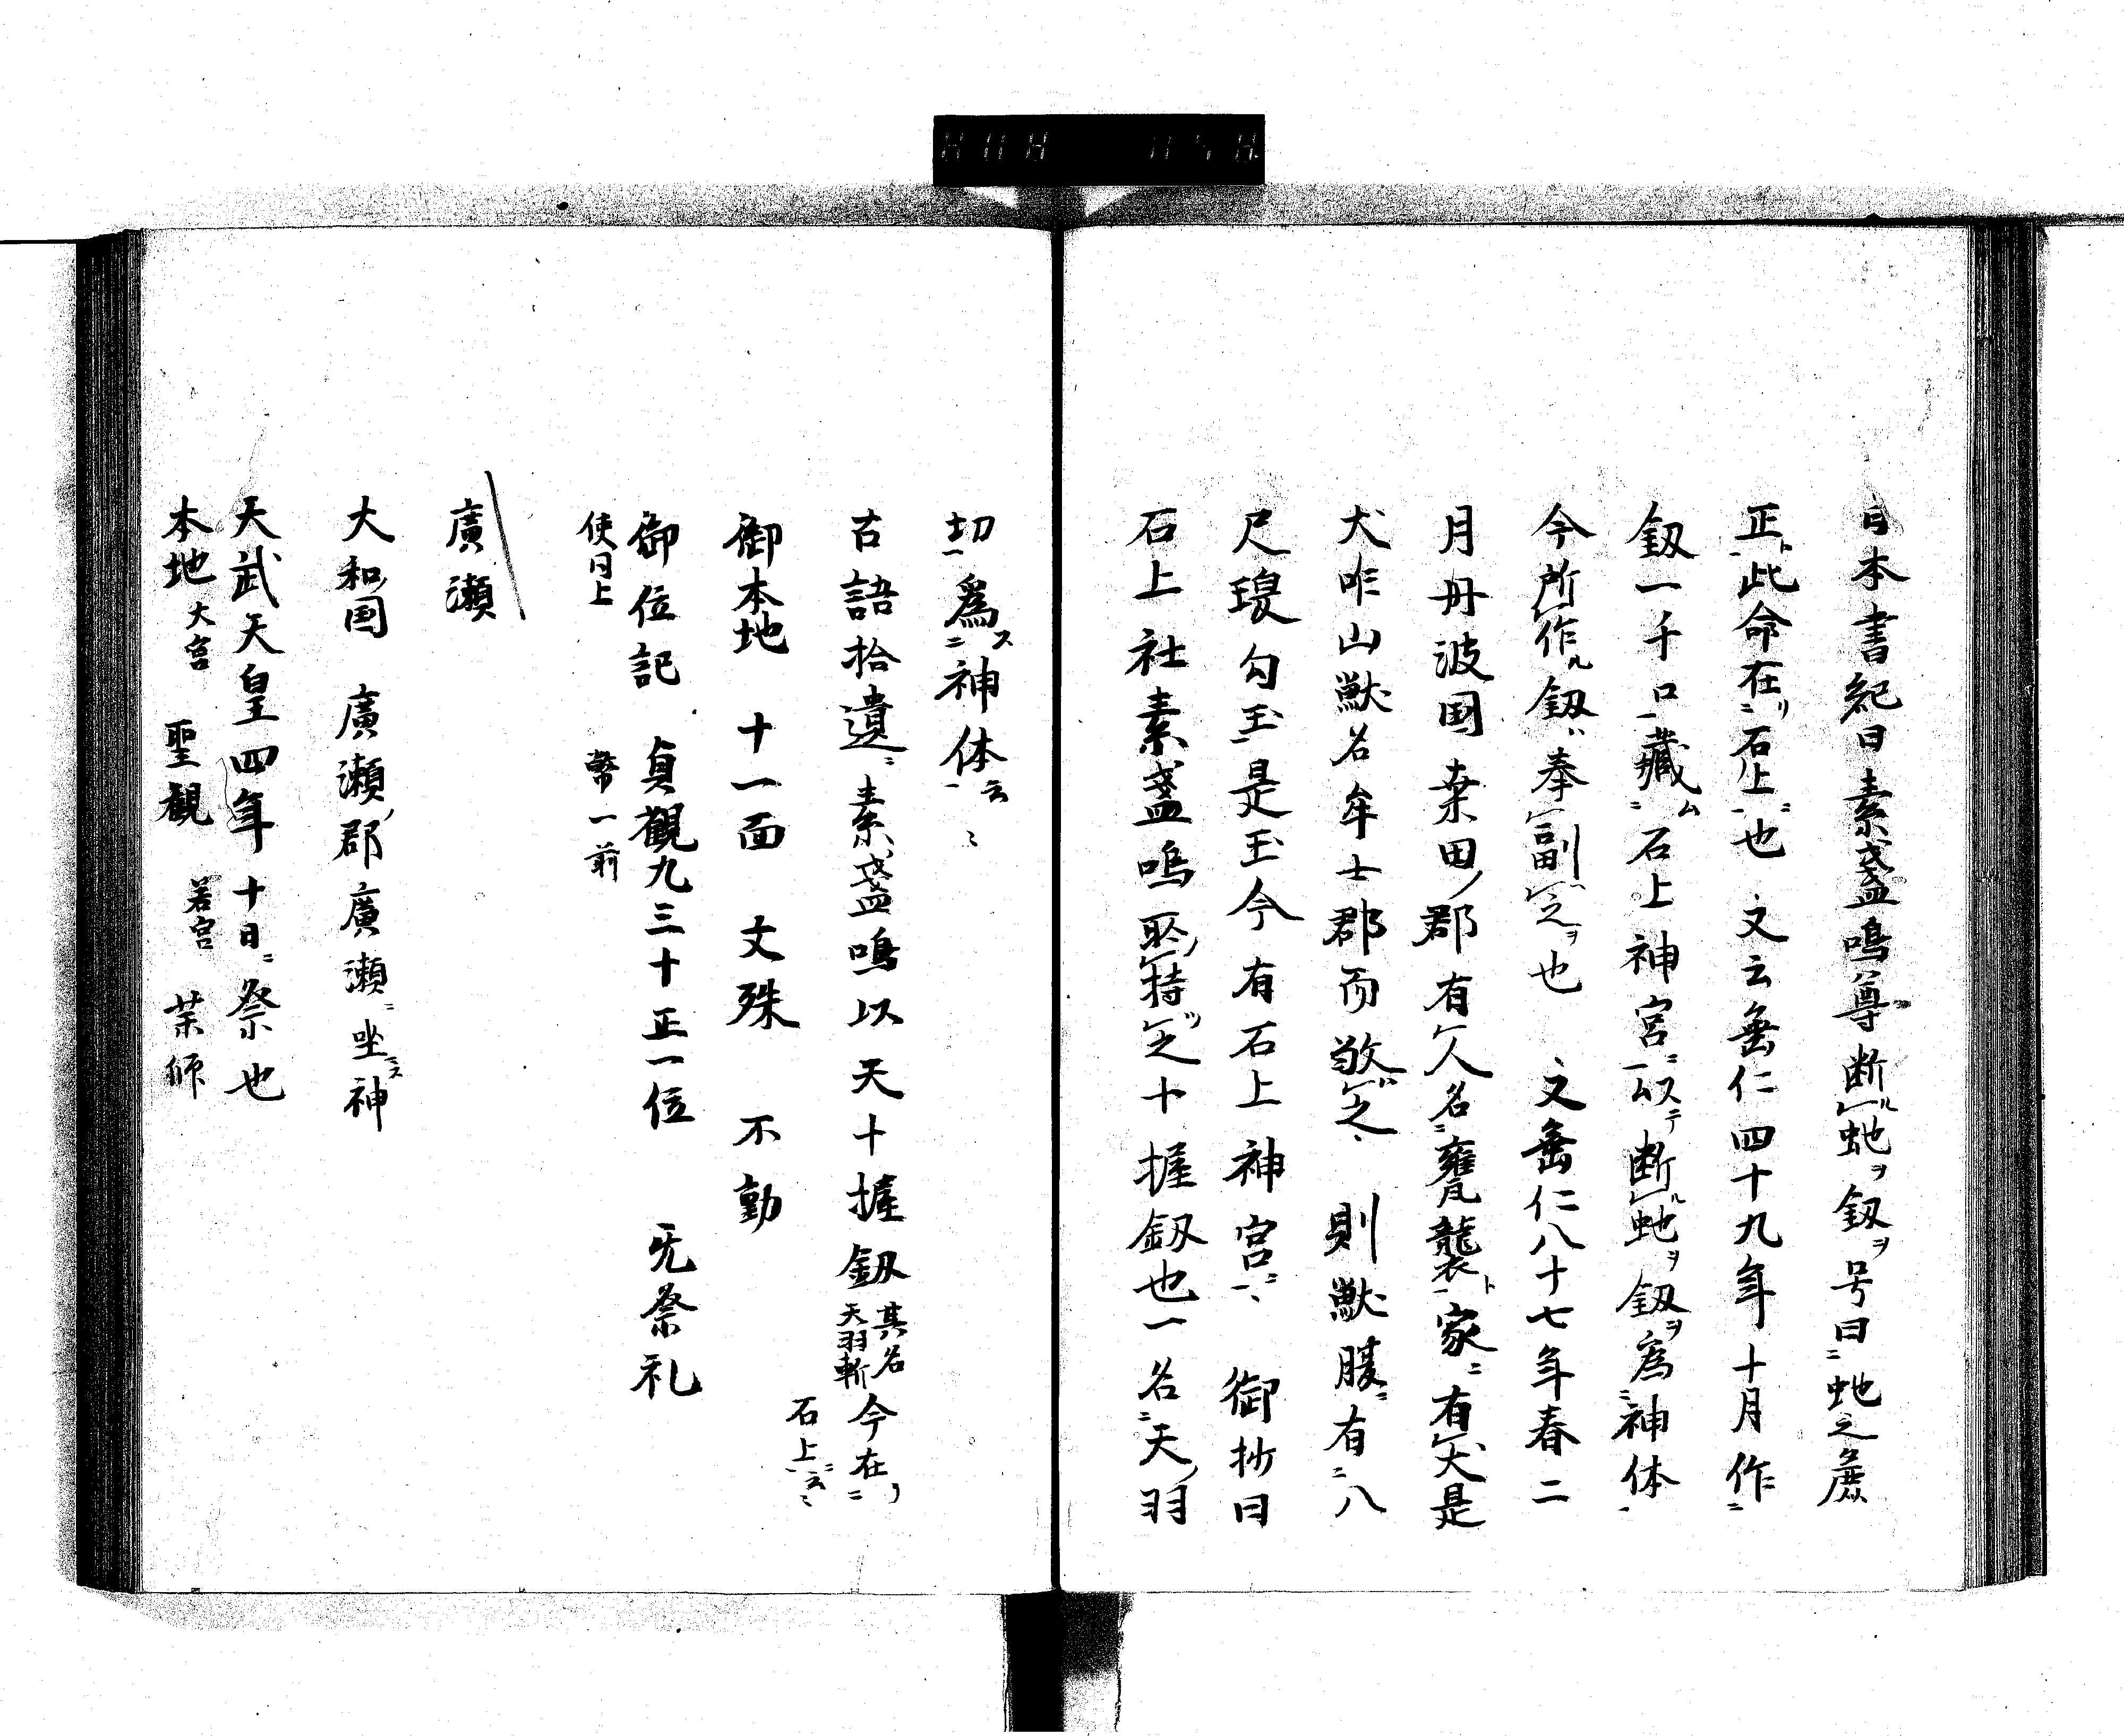 日本書紀曰素盞嗚尊断蛇釼号曰蛇之麁
正此命在石上也 又云垂仁四十九年十月作
釼一千口藏石上神宮以断蛇釼為神体
今所作釼奉副之也 又垂仁八十七年春二
月丹波国桒田郡有人名甕襲家有犬是
犬咋山獣名牟士郡而敬之 則獣腹有八
尺瓊勾玉是玉今有石上神宮 御抄曰
石上社素盞嗚所持之十握釼也一名天羽
切為神体云々
古語拾遺素盞嗚以天十握釼其名天羽斬今在石上云々
御本地 十一面 文殊 不動
御位記 貞観九三十正一位 无祭礼
使同上 幣一前
廣瀬
大和国 廣瀬郡廣瀬坐神
天武天皇四年十日祭也
本地 大宮 聖観 若宮 薬師